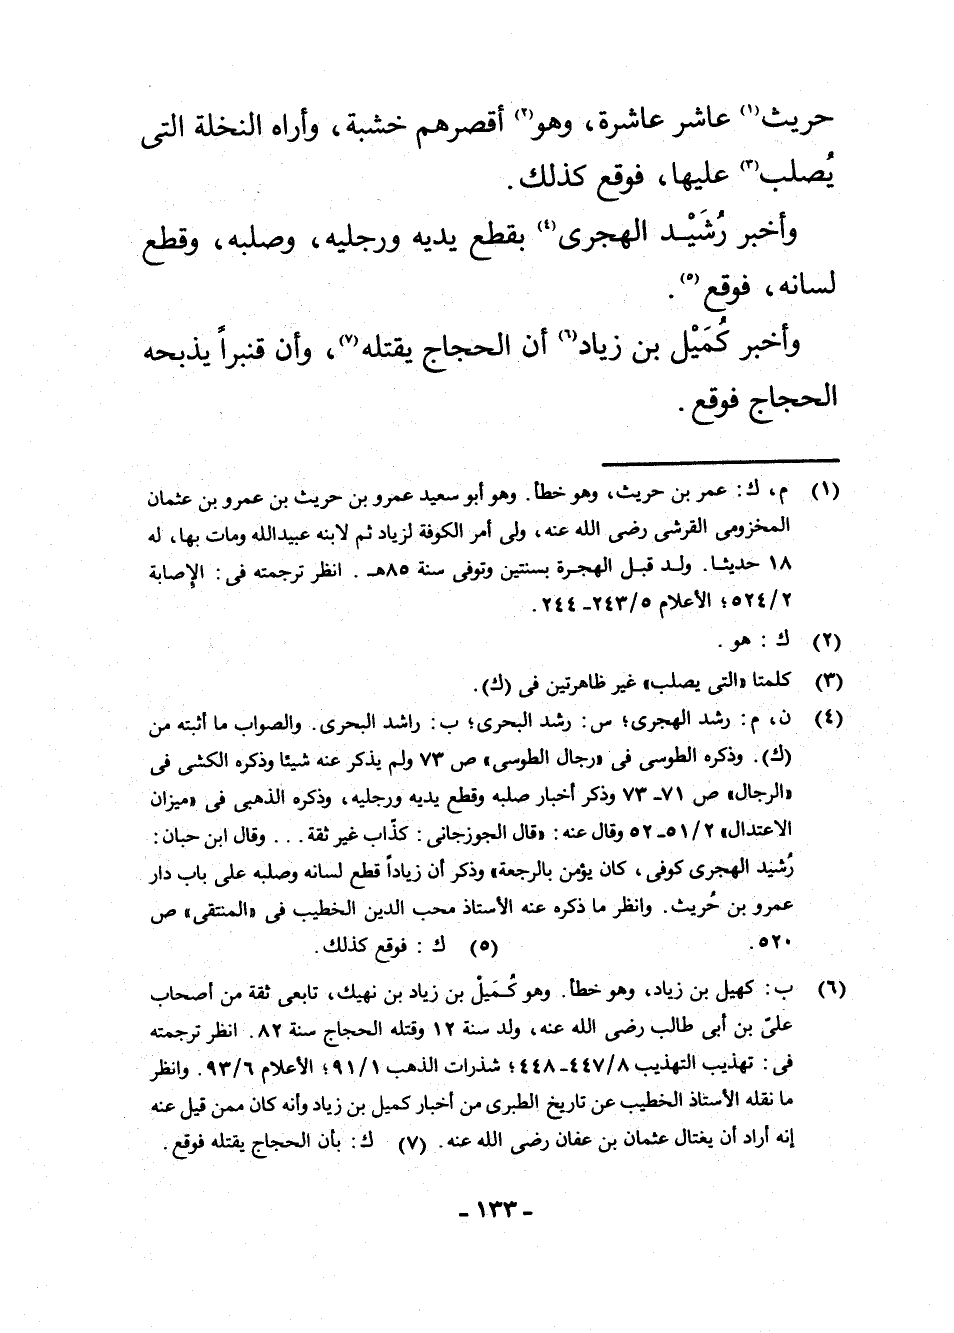 حريث(١) عاشر عاشرة، وهو(٢) أقصرهم خشبة، وأراه النخلة التى
يُصلب(٣) عليها، فوقع كذلك.
وأخبر رُشَيْد الهجرى(٤) بقطع يديه ورجليه، وصلبه، وقطع
لسانه، فوقع(٥).
وأخبر كُمَيْل بن زياد(٦) أن الحجاج يقتله(٧)، وأن قنبراً يذبحه
الحجاج فوقع.
(١) م، ك: عمر بن حريث، وهو خطأ. وهو أبو سعيد عمرو بن حريث بن عمرو بن عثمان
المخزومى القرشى رضى الله عنه، ولى أمر الكوفة لزياد ثم لابنه عبيدالله ومات بها، له
١٨ حديثا. ولد قبل الهجرة بسنتين وتوفى سنة ٨٥هـ. انظر ترجمته فى: الإصابة
٥٢٤/٢؛ الأعلام ٢٤٣/٥-٢٤٤.
(٢) ك: هو.
(٣) كلمتا «التى يصلب» غير ظاهرتين فى (ك).
(٤) ن، م: رشد الهجرى؛ س: رشد البحرى؛ ب: راشد البحرى. والصواب ما أثبته من
(ك). وذكره الطوسى فى «رجال الطوسى» ص ٧٣ ولم يذكر عنه شيئا وذكره الكشى فى
«الرجال» ص ٧١-٧٣ وذكر أخبار صلبه وقطع يديه ورجليه، وذكره الذهبى فى «ميزان
الاعتدال» ٥١/٢-٥٢ وقال عنه: «قال الجوزجانى: كذّاب غير ثقة... وقال ابن حبان:
رُشيد الهجرى كوفى، كان يؤمن بالرجعة» وذكر أن زياداً قطع لسانه وصلبه على باب دار
عمرو بن حُريث. وانظر ما ذكره عنه الأستاذ محب الدين الخطيب فى «المنتقى» ص
٥٢٠. (٥) ك: فوقع كذلك.
(٦) ب: كهيل بن زياد، وهو خطأ. وهو كُـمَيلْ بن زياد بن نهيك، تابعى ثقة من أصحاب
علىّ بن أبى طالب رضى الله عنه، ولد سنة ١٢ وقتله الحجاج سنة ٨٢. انظر ترجمته
فى: تهذيب التهذيب ٤٤٧/٨-٤٤٨؛ شذرات الذهب ٩١/١؛ الأعلام ٩٣/٦. وانظر
ما نقله الأستاذ الخطيب عن تاريخ الطبرى من أخبار كميل بن زياد وأنه كان ممن قيل عنه
إنه أراد أن يغتال عثمان بن عفان رضى الله عنه. (٧) ك: بأن الحجاج يقتله فوقع.
- ١٣٣ -